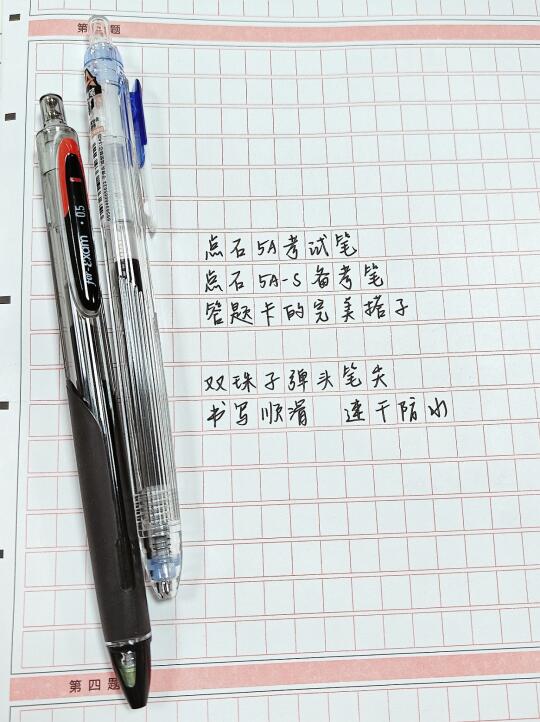 第 题
for-Exam · 0.5
点石5A考试笔
点石5A-S备考笔
答题卡的完美搭子
双珠子弹头笔尖
书写顺滑 速干防水
第四题